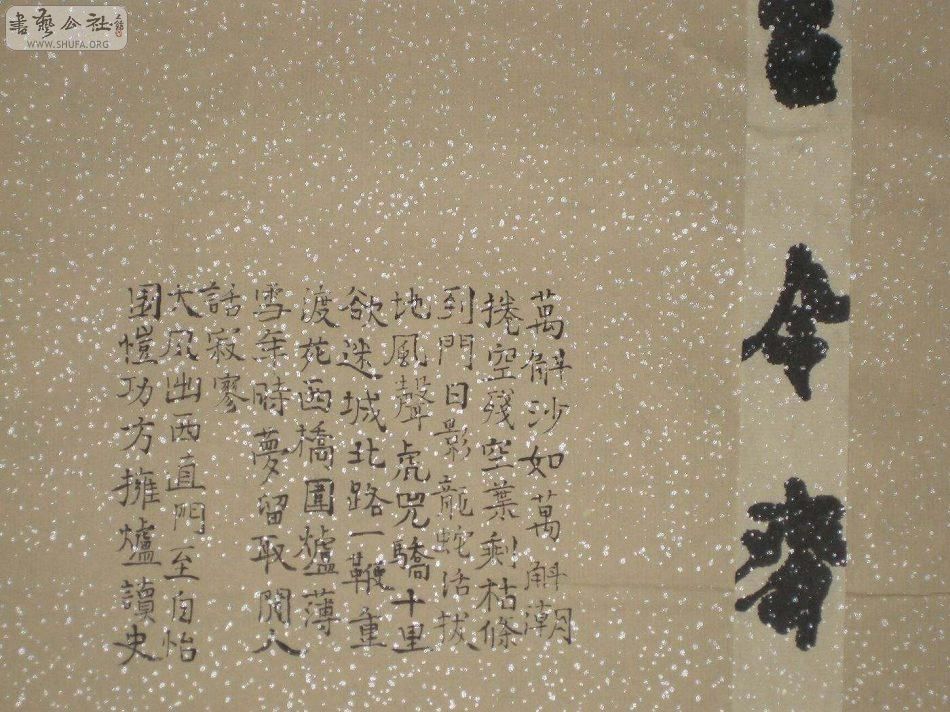 今齊
萬斛沙如萬斛潮
捲空殘空葉剩枯條
到門日影龍蛇活拔
地風聲虎兕驕十里
欲迷城北路一鞭重
渡苑西橋圍爐薄
雪年時夢留取閒人
話寂寥
大風出西直門至自怡
園愷功方擁爐讀史
書藝公社
WWW.SHUFA.ORG